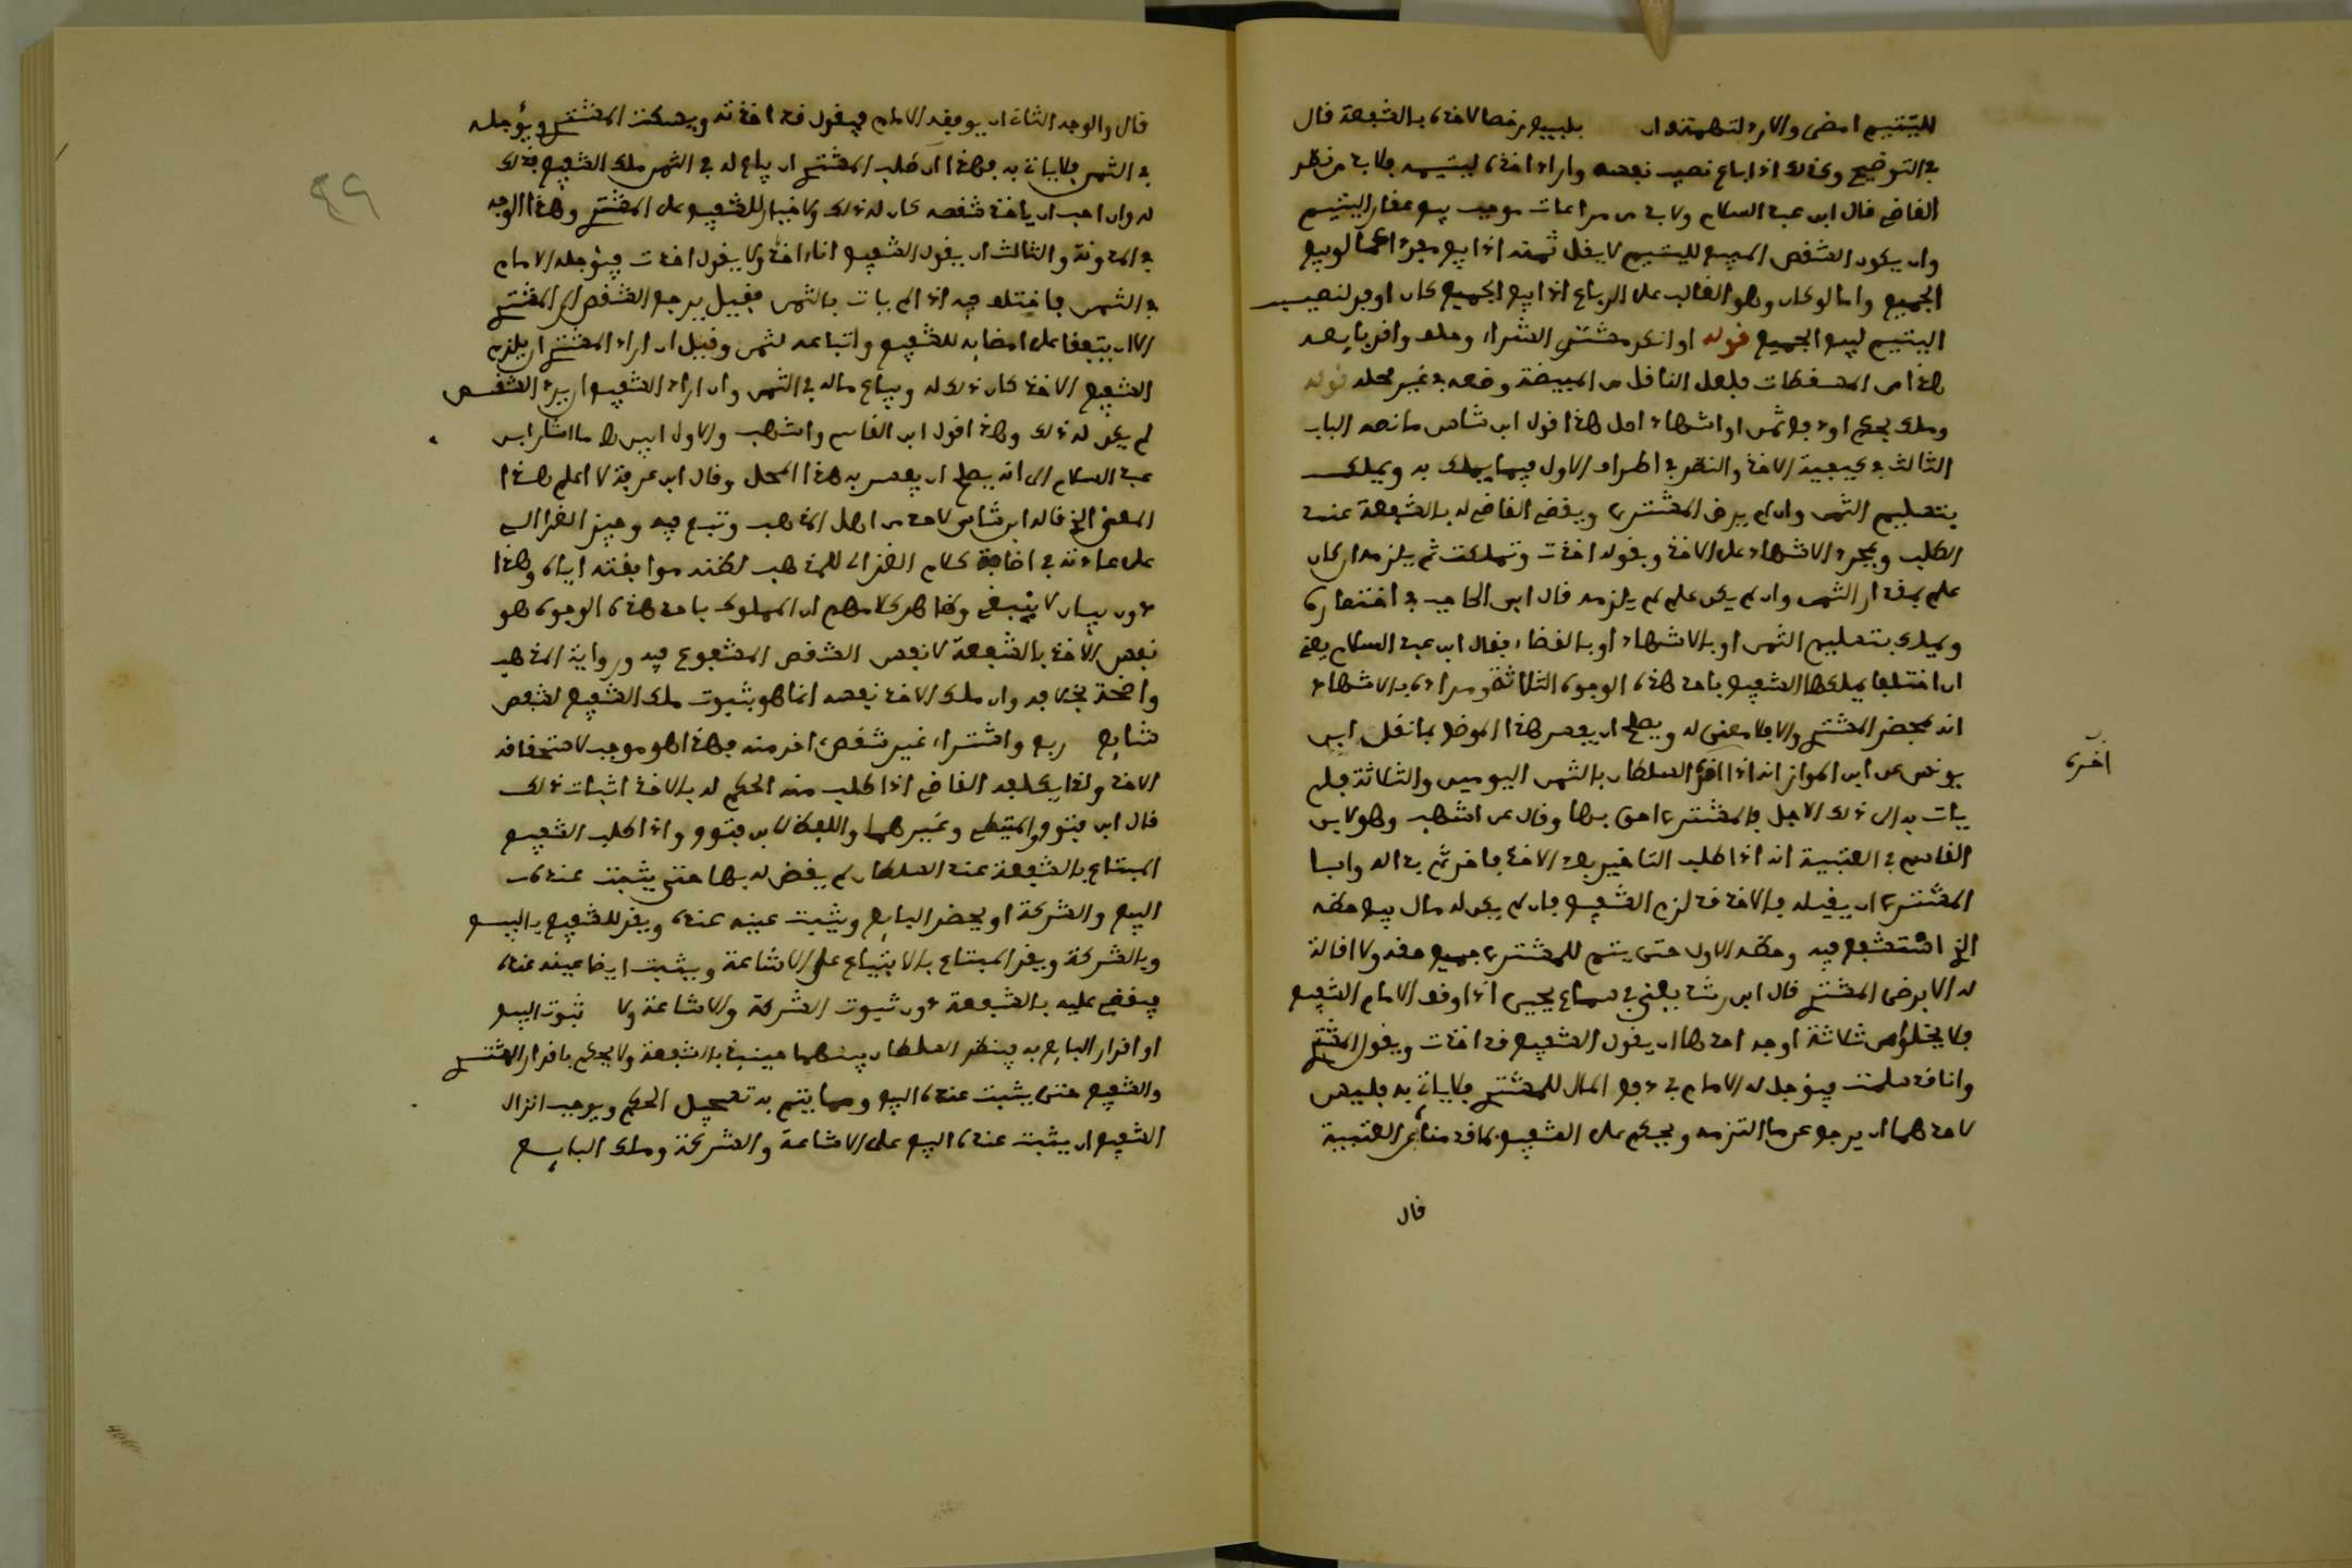 لليتيم امضى والا رد لتهمته ان يبيع رخصا لاخذه بالشفعة قال
في التوضيح وكذلك اذا باع نصيب نفسه واراد اخذه ليتيمه فلا بد من نظر
القاضي قال ابن عبد السلام ولا بد من مراعات موجب بيع عقار اليتيم
وان يكون الشقص المبيع لليتيم لا يقل ثمنه اذا بيع مفردا عما لو بيع
الجميع واما لو كان وهو الغالب على الرباع اذا بيع الجميع كان اوفر لنصيب
اليتيم لبيع الجميع قوله او انكر مشتر الشراء وحلف واقر بايعه
هذا من المسقطات فلعل الناقل من المبيضة وضعه في غير محله قوله
وملك بحكم او دفع ثمن او اشهاد اصل هذا قول ابن شاس ما نصه الباب
الثالث في كيفية الاخذ والنظر في اطراف الاول فيما يملك به ويملك
بتسليم الثمن وان لم يرض المشتري ويقضي القاضي له بالشفعة عند
الطلب وبمجرد الاشهاد على الاخذ وبقوله اخذت وتملكت ثم يلزمه ان كان
علم بمقدار الثمن وان لم يكن علم لم يلزمه قال ابن الحاجب في اختصاره
ويملك بتسليم الثمن او بالاشهاد او بالقضاء فقال ابن عبد السلام يعني
ان اختلفا يملكها الشفيع باحد هذه الوجوه الثلاثة ومراده بالاشهاد
انه بمحضر المشتري والا فلا معنى له ويصلح ان يفسر هذا الموضع بما نقل ابن
يونس عن ابن المواز انه اذا اخره السلطان بالثمن اليومين والثلاثة فلم
يات به الى ذلك الاجل فالمشتري احق بها وقال عن اشهب وهو لابن
القاسم في العتبية انه اذا طلب التاخير بعد الاخذ فاخر ثم بدا له وابا
المشتري ان يقيله فالاخذ قد لزم الشفيع فان لم يكن له مال بيع حظه
الذي استشفع فيه وحظه الاول حتى يتم للمشتري جميع حقه ولا اقالة
له الا برضى المشتري قال ابن رشد يعني في سماع يحيى اذا وقف الامام الشفيع
فلا يخلو من ثلاثة اوجه احدها ان يقول الشفيع قد اخذت ويقول المشتري
وانا قد سلمت فيؤجل له الامام في دفع المال للمشتري فلا ياتي به فليس
لاحدهما ان يرجع عن ما التزمه ويحكم على الشفيع بما قدمناه عن العتبية
قال
اخره
٤٩
قال والوجه الثاني ان يوقفه الامام فيقول قد اخذته ويسكت المشتري ويؤجله
في الثمن فلا ياتي به فهذا ان طلب المشتري ان يباع له في الثمن ملك الشفيع فذلك
له وان احب ان ياخذ شقصه كان له ذلك ولا خيار للشفيع على المشتري وهذا الوجه
في المدونة والثالث ان يقول الشفيع انا اخذ ولا يقول اخذت فيؤجله الامام
في الثمن فاختلف فيه اذا لم يات بالثمن فقيل يرجع الشقص الى المشتري
الا ان يتفقا على امضائه للشفيع واتباعه لثمن وقيل ان اراد المشتري ان يلزم
الشفيع الاخذ كان ذلك له ويباع ماله في الثمن وان اراد الشفيع ان يرد الشقص
لم يكن له ذلك وهذا قول ابن القاسم واشهب والاول ابين اه ما اشار ابن
عبد السلام الى انه يصلح ان يفسر به هذا المحل وقال ابن عرفة لا اعلم هذا
المعنى الذي قاله ابن شاس لاحد من اهل المذهب وتبع فيه وجيز الغزالي
على عادته في اضافة كلام الغزالي للمذهب لظنه موافقته اياه وهذا
دون بيان لا ينبغي وظاهر كلامهم ان المملوك باحد هذه الوجوه هو
نفس الاخذ بالشفعة لا نفس الشقص المشفوع فيه ورواية المذهب
واضحة بخلافه وان ملك الاخذ نفسه انما هو بثبوت ملك الشفيع لشقص
شايع ربع واشتراء غير شقص اخر منه فهذا هو موجب لاستحقاقه
الاخذ ولذا يكلفه القاضي اذا طلب منه الحكم له بالاخذ اثبات ذلك
قال ابن فتوح والمتيطي وغيرهما واللفظ لابن فتوح واذا طلب الشفيع
المبتاع بالشفعة عند السلطان لم يقض له بها حتى يثبت عنده
البيع والشركة او يحضر البايع ويثبت عينه عنده ويقر للشفيع بالبيع
وبالشركة ويقر المبتاع بالابتياع على الاشاعة ويثبت ايضا عينه عنده
فيقضى عليه بالشفعة دون ثبوت الشركة والاشاعة ولا ثبوت البيع
او اقرار البايع به فينظر السلطان بينهما حينئذ بالشفعة ولا يحكم باقرار المشتري
والشفيع حتى يثبت عنده البيع ومما يتم به تعجيل الحكم ويوجب انزال
الشفيع ان يثبت عنده البيع على الاشاعة والشركة وملك البايع